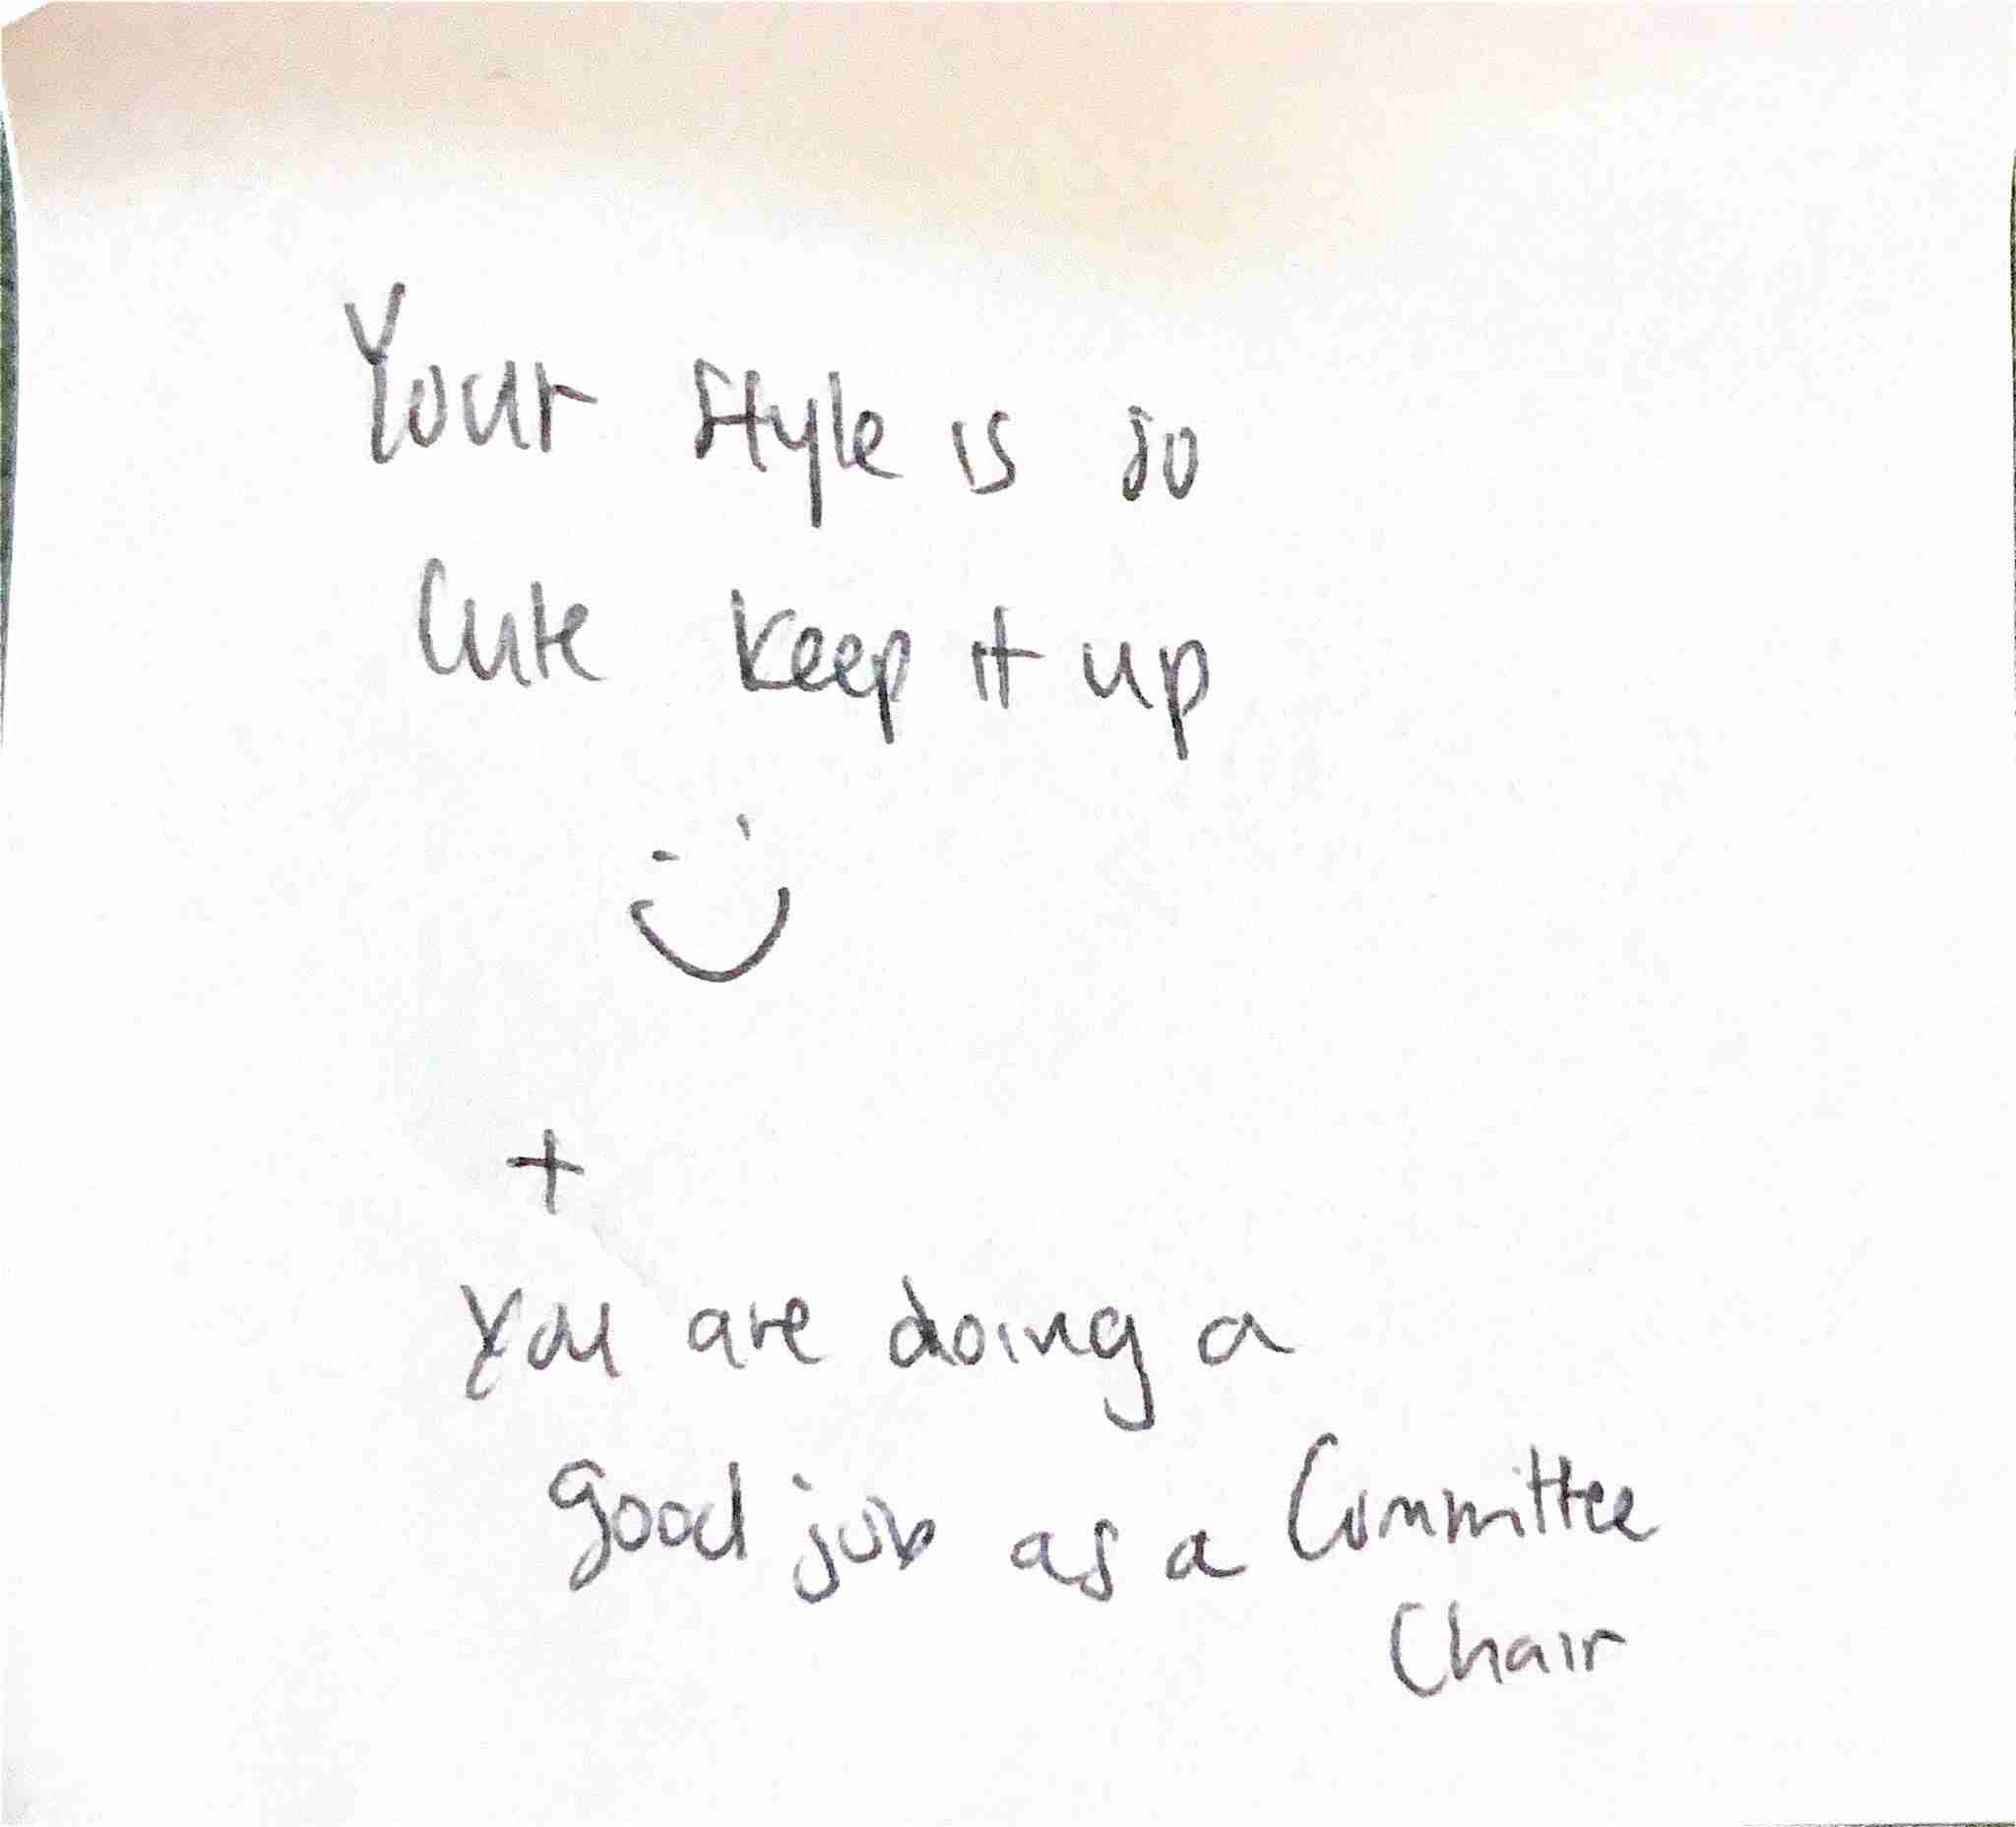 Your style is so
Cute keep it up
:)
+
You are doing a
good job as a Committee
Chair